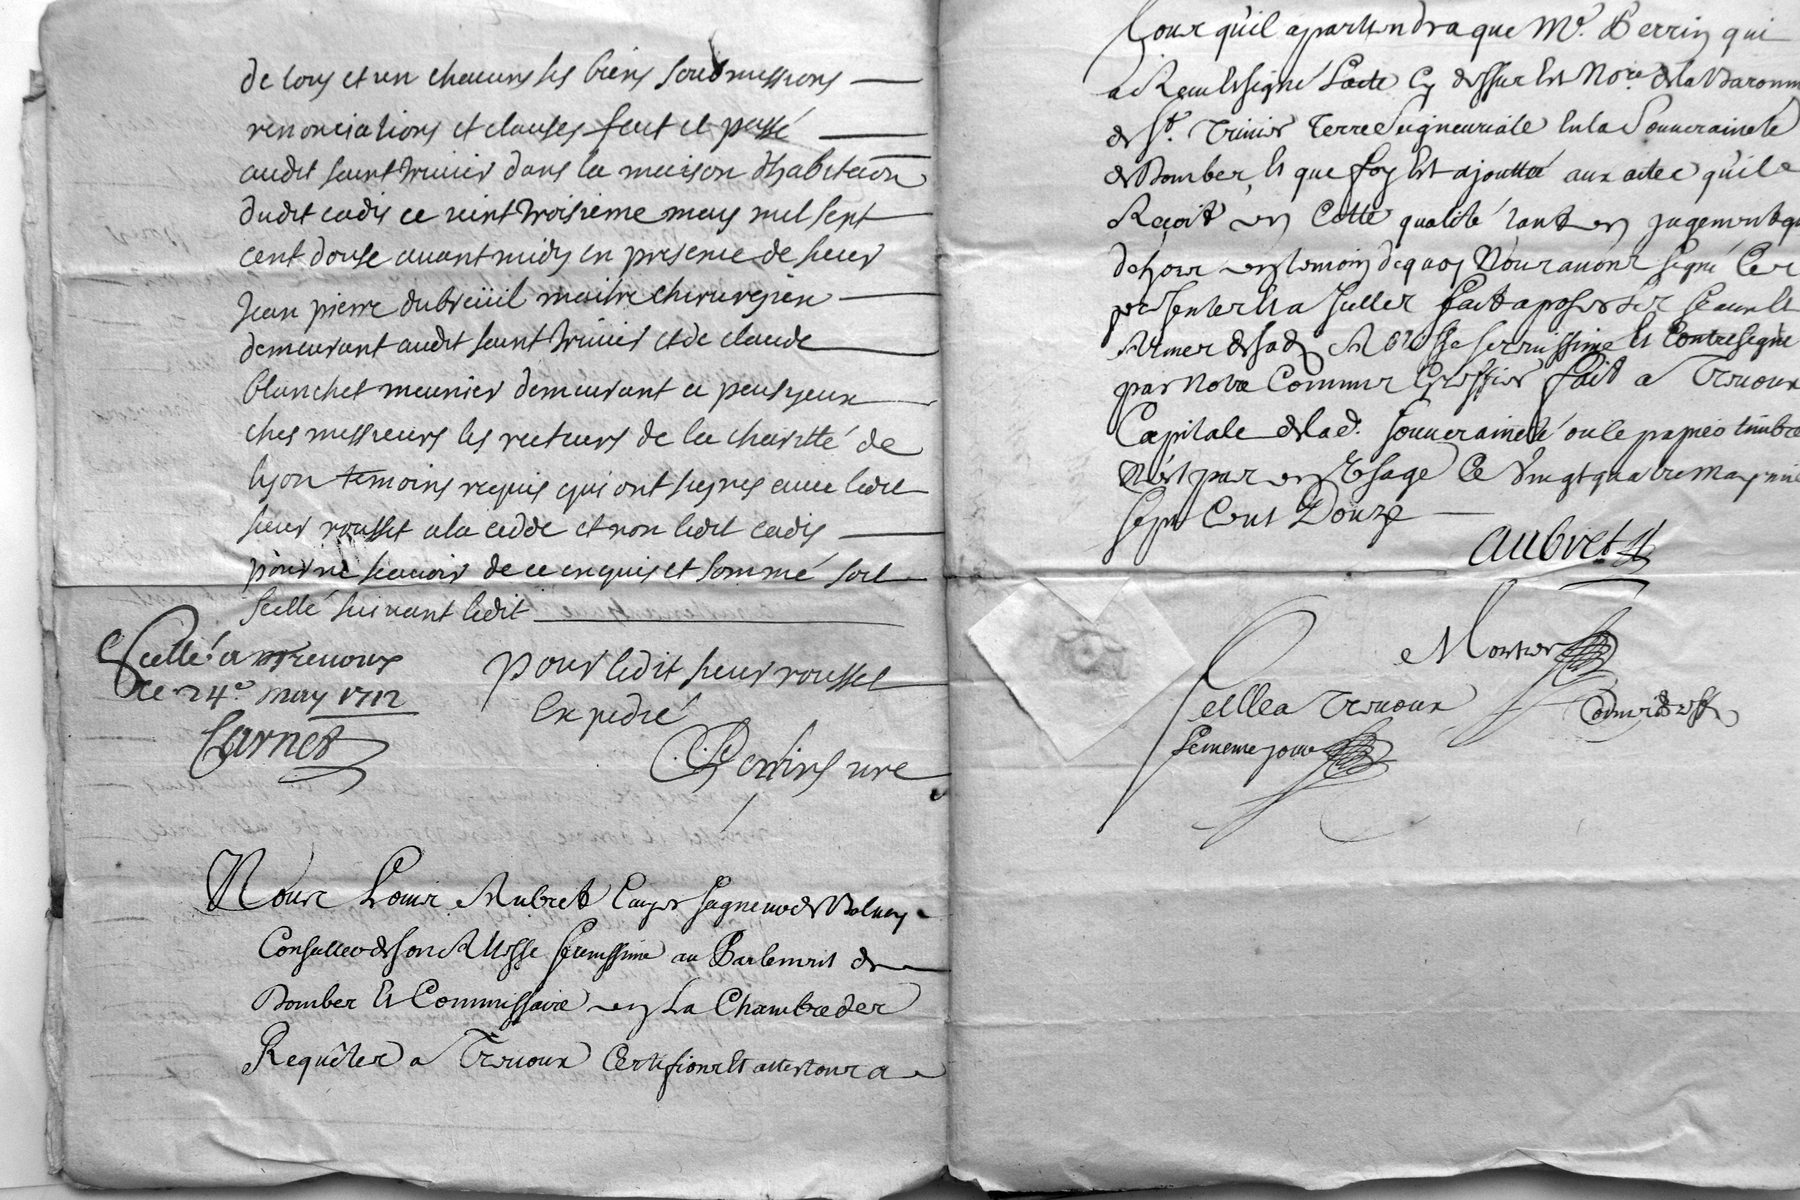 de tous et un chacuns ses biens soubmissions
renonciations et clauses fait et passé
audit saint trivier dans la maison dhabitaon
dudit cadis ce vint troisieme may mil sept
cent douse avant midy en presence de sieur
Jean pierre dubreüil maitre chirurgien
demeurant audit saint trivier et de claude
blanchet meunier demeurant a
ches messieurs les recteurs de la charitté de
lyon temoins requis qui ont signes avec ledit
sieur rousset a la cedde et non ledit cadis
pour ne scavoir de ce enquis et sommé soit
scellé suivant ledit
Scellé a Trevoux
ce 24e may 1712
Carnet
pour ledit sieur rousset
Expedié
Perrin nre
Nous Louis Aubret Seigneur de
Conseiller de son Altesse serenissime au Parlement de
Dombes Et Commissaire en La Chambre des
Requêtes a Trevoux Certifions Et attestons a
Tous qu'il apartiendra que Me. Perrin qui
a Receu Et signé L'acte Cy dessus Est Nore. de la Baronnie
de St. Trivier Terre Seigneuriale En la Souveraineté
de Dombes, Et que foy Est ajouttée aux actes qu'il
Reçoit en Cette qualité tant en jugement que
dehors en temoin de quoy Nous avons signé Ces
presentes Et a Icelles fait aposer
Armes de sad. Altesse serenissime Et Contresigné
par Notre Commis Greffier fait a Trevoux
Capitale de lad. souveraineté ou le papier timbré
N'est pas en Usage Ce vingt quatre may mil
sept Cent Douze
Aubret
Scellé a Trevoux
Le meme jour